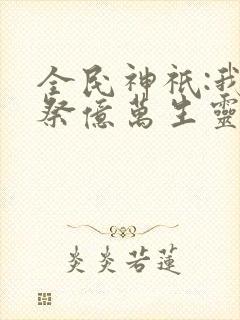 全民神祇:我
祭億萬生靈
炎炎若蓮